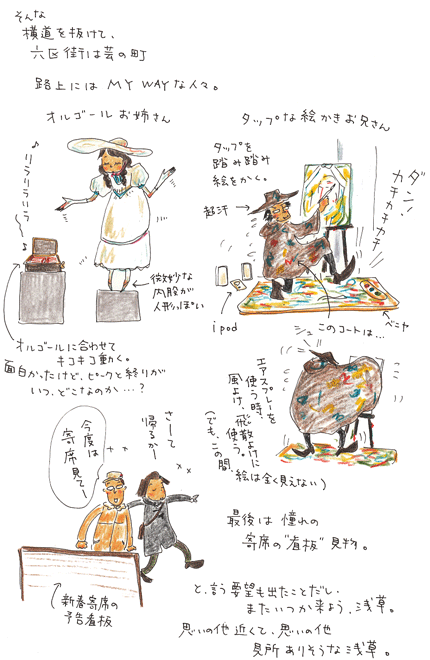 そんな
横道を抜けて、
六区街は芸の町
路上には MY WAYな人々。
オルゴールお姉さん
♪リラリラリラ♪
微妙な
肉股が
人形っぽい
オルゴールに合わせて
キコキコ動く。
面白かったけど、ピークと終りが
いつ、どこなのか…?
タップな絵かきお兄さん
タップを
踏み踏み
絵をかく。
超汗
ダン!
カチカチカチ
ipod
ベニヤ
このコートは…
エアスプレーを
使う時、
風よけ、飛散よけに
使う。
(でも、この間、
絵は全く見えない)
さーて
帰るかー
今度は
寄席見てー
新春寄席の
予告看板
最後は 憧れの
寄席の"看板"見物。
と、言う要望も出たことだし、
またいつか来よう、浅草。
思いの他 近くて、思いの他
見所ありそうな浅草。